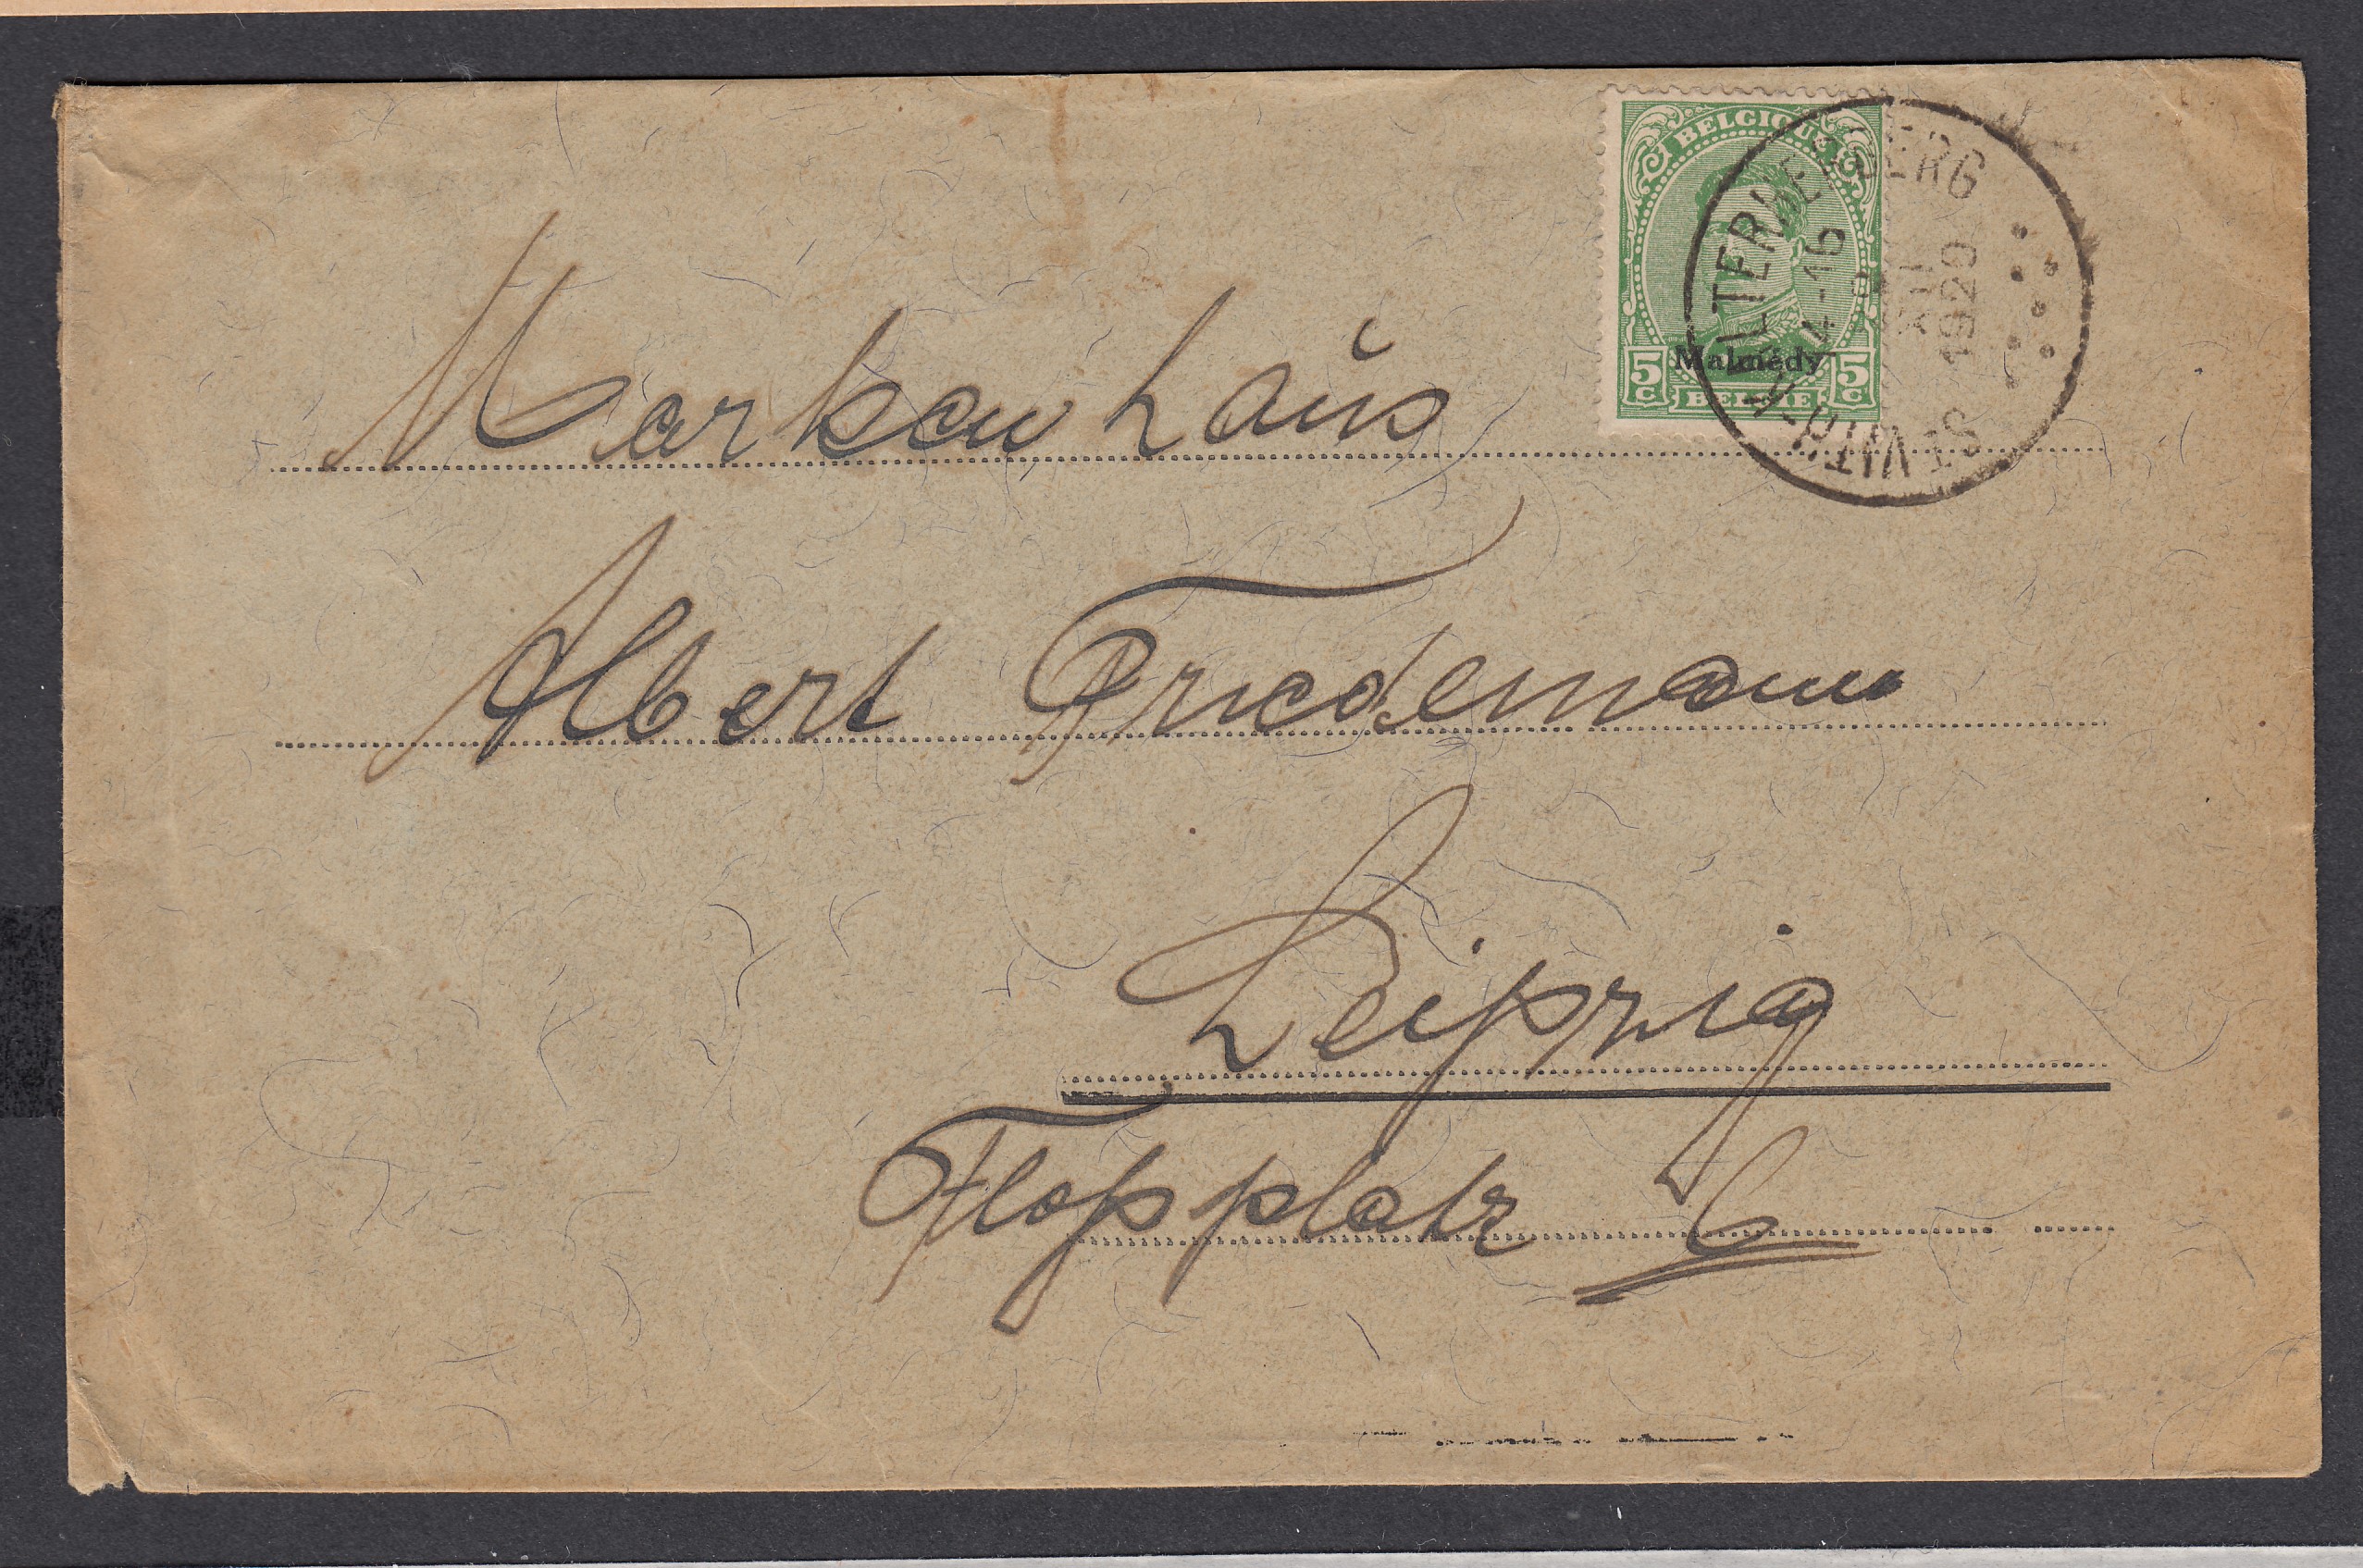 BELGIQUE
5 Malmédy 5
C BELGIË C
4-16
XII
1920
ST VITH
Markenhaus
Albert Friedemann
Leipzig
Floßplatz 6